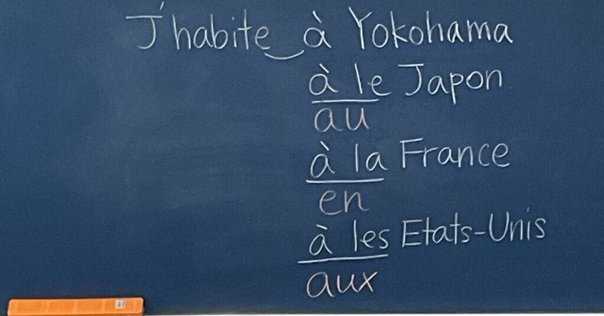 J'habite à Yokohama
à le Japon
au
à la France
en
à les Etats-Unis
aux